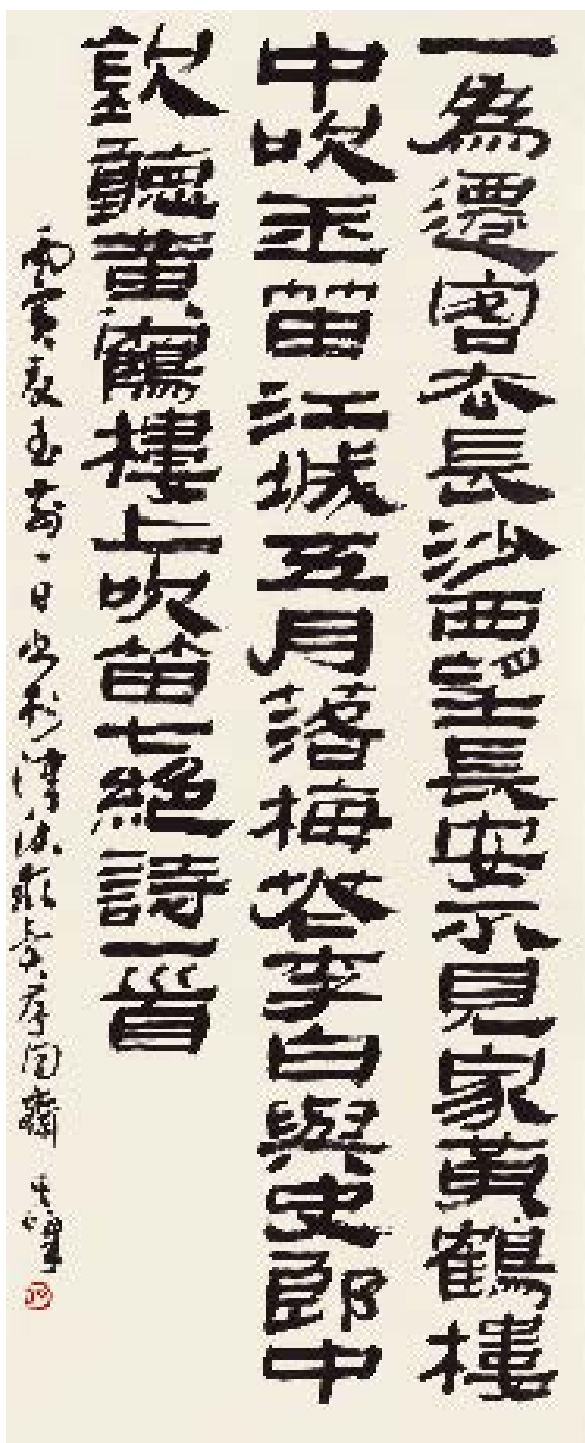 一為遷客去長沙西望長安不見家黃鶴樓
中吹玉笛江城五月落梅花李白與史郎中
欽聽黃鶴樓上吹笛七絕詩一首
丙寅夏至前一日 津沽 存同齋 其峰